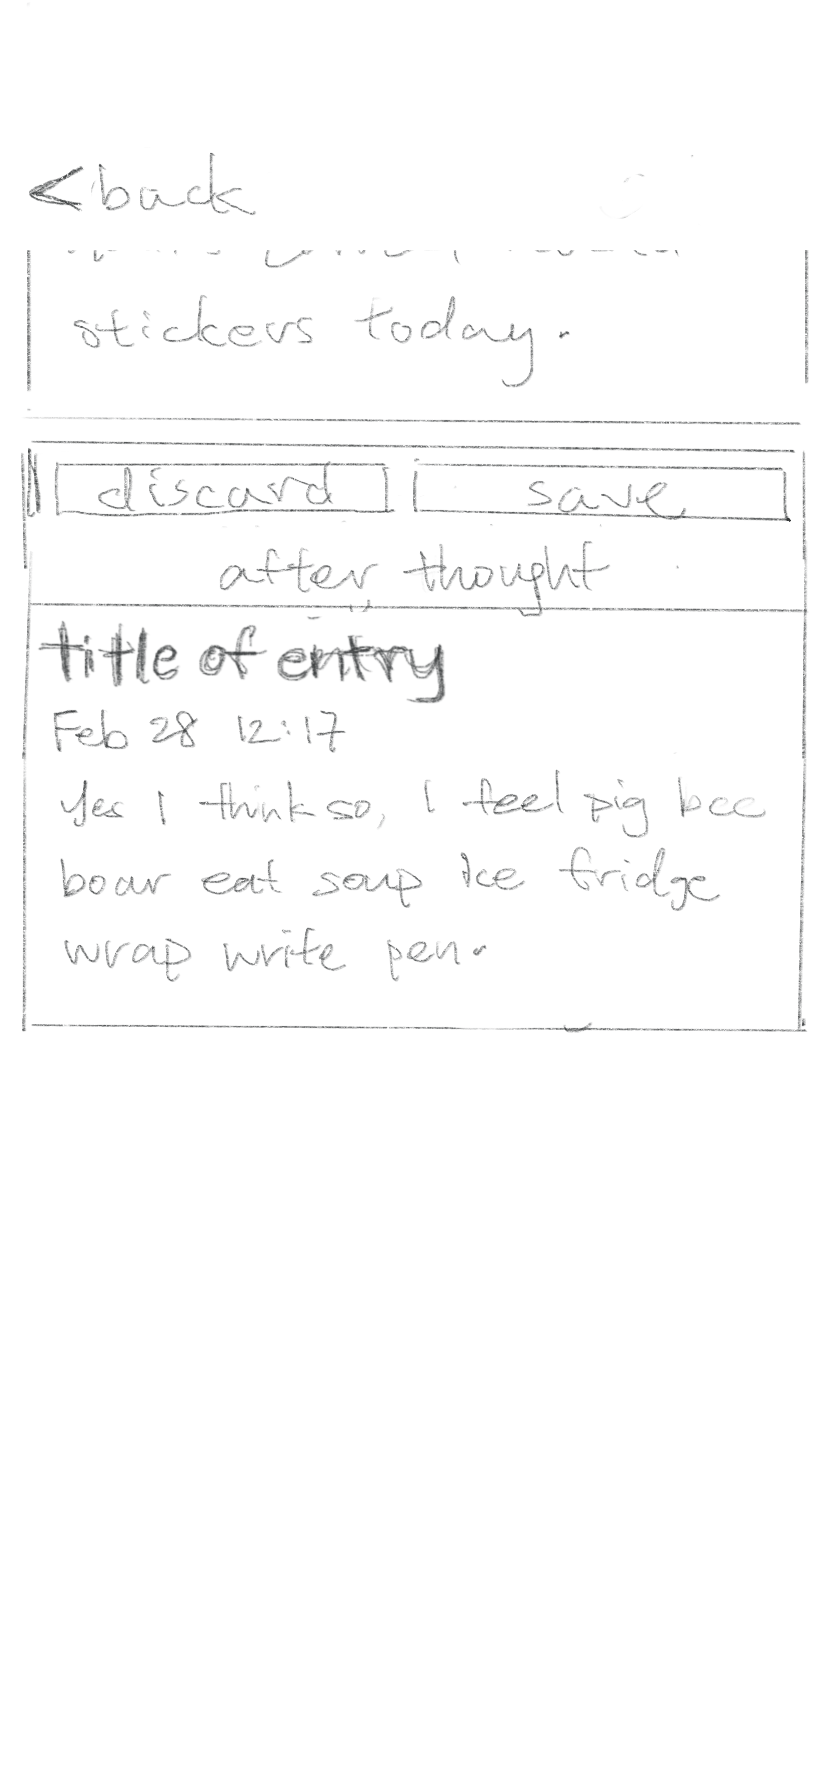 <back
stickers today.
discard save
after thought
title of entry
Feb 28 12:17
Yes I think so, I feel pig bcc
boar eat soup ice fridge
wrap write pen.